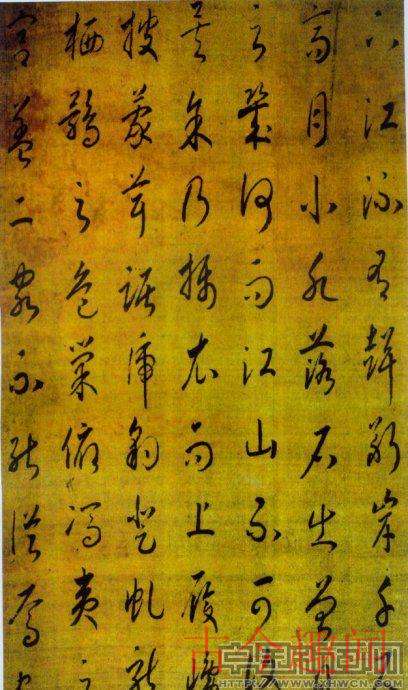 下江流有聲斷岸千尺
高月小水落石出曾日
之幾何而江山不可復
矣余乃攝衣而上履巉
披蒙茸踞虎豹登虬龍
栖鶻之危巢俯馮夷之
宮蓋二客不能從焉